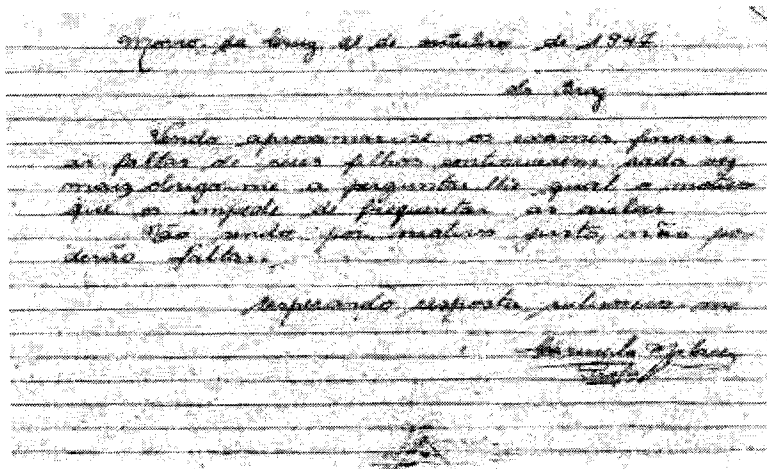 Morro da Cruz, 21 de outubro de 1947
Sr. Cruz
Vendo aproximarem-se os exames finais e
as faltas de seus filhos continuarem cada vez
mais obriga-me a perguntar-lhe qual o motivo
que os impede de frequentar as aulas.
Não sendo por motivo justo, não po-
derão faltar.
Esperando resposta, subscrevo-me